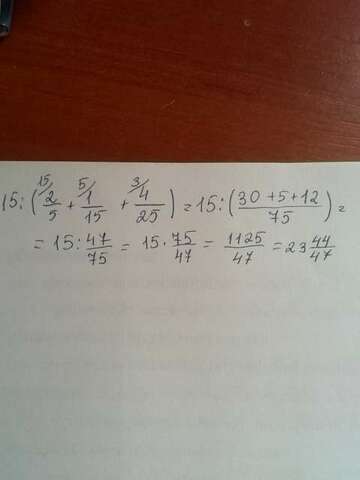 15:(¹⁵⁄2/5 + ⁵⁄1/15 + ³⁄4/25) = 15:(30+5+12/75) =
= 15:47/75 = 15·75/47 = 1125/47 = 23 44/47